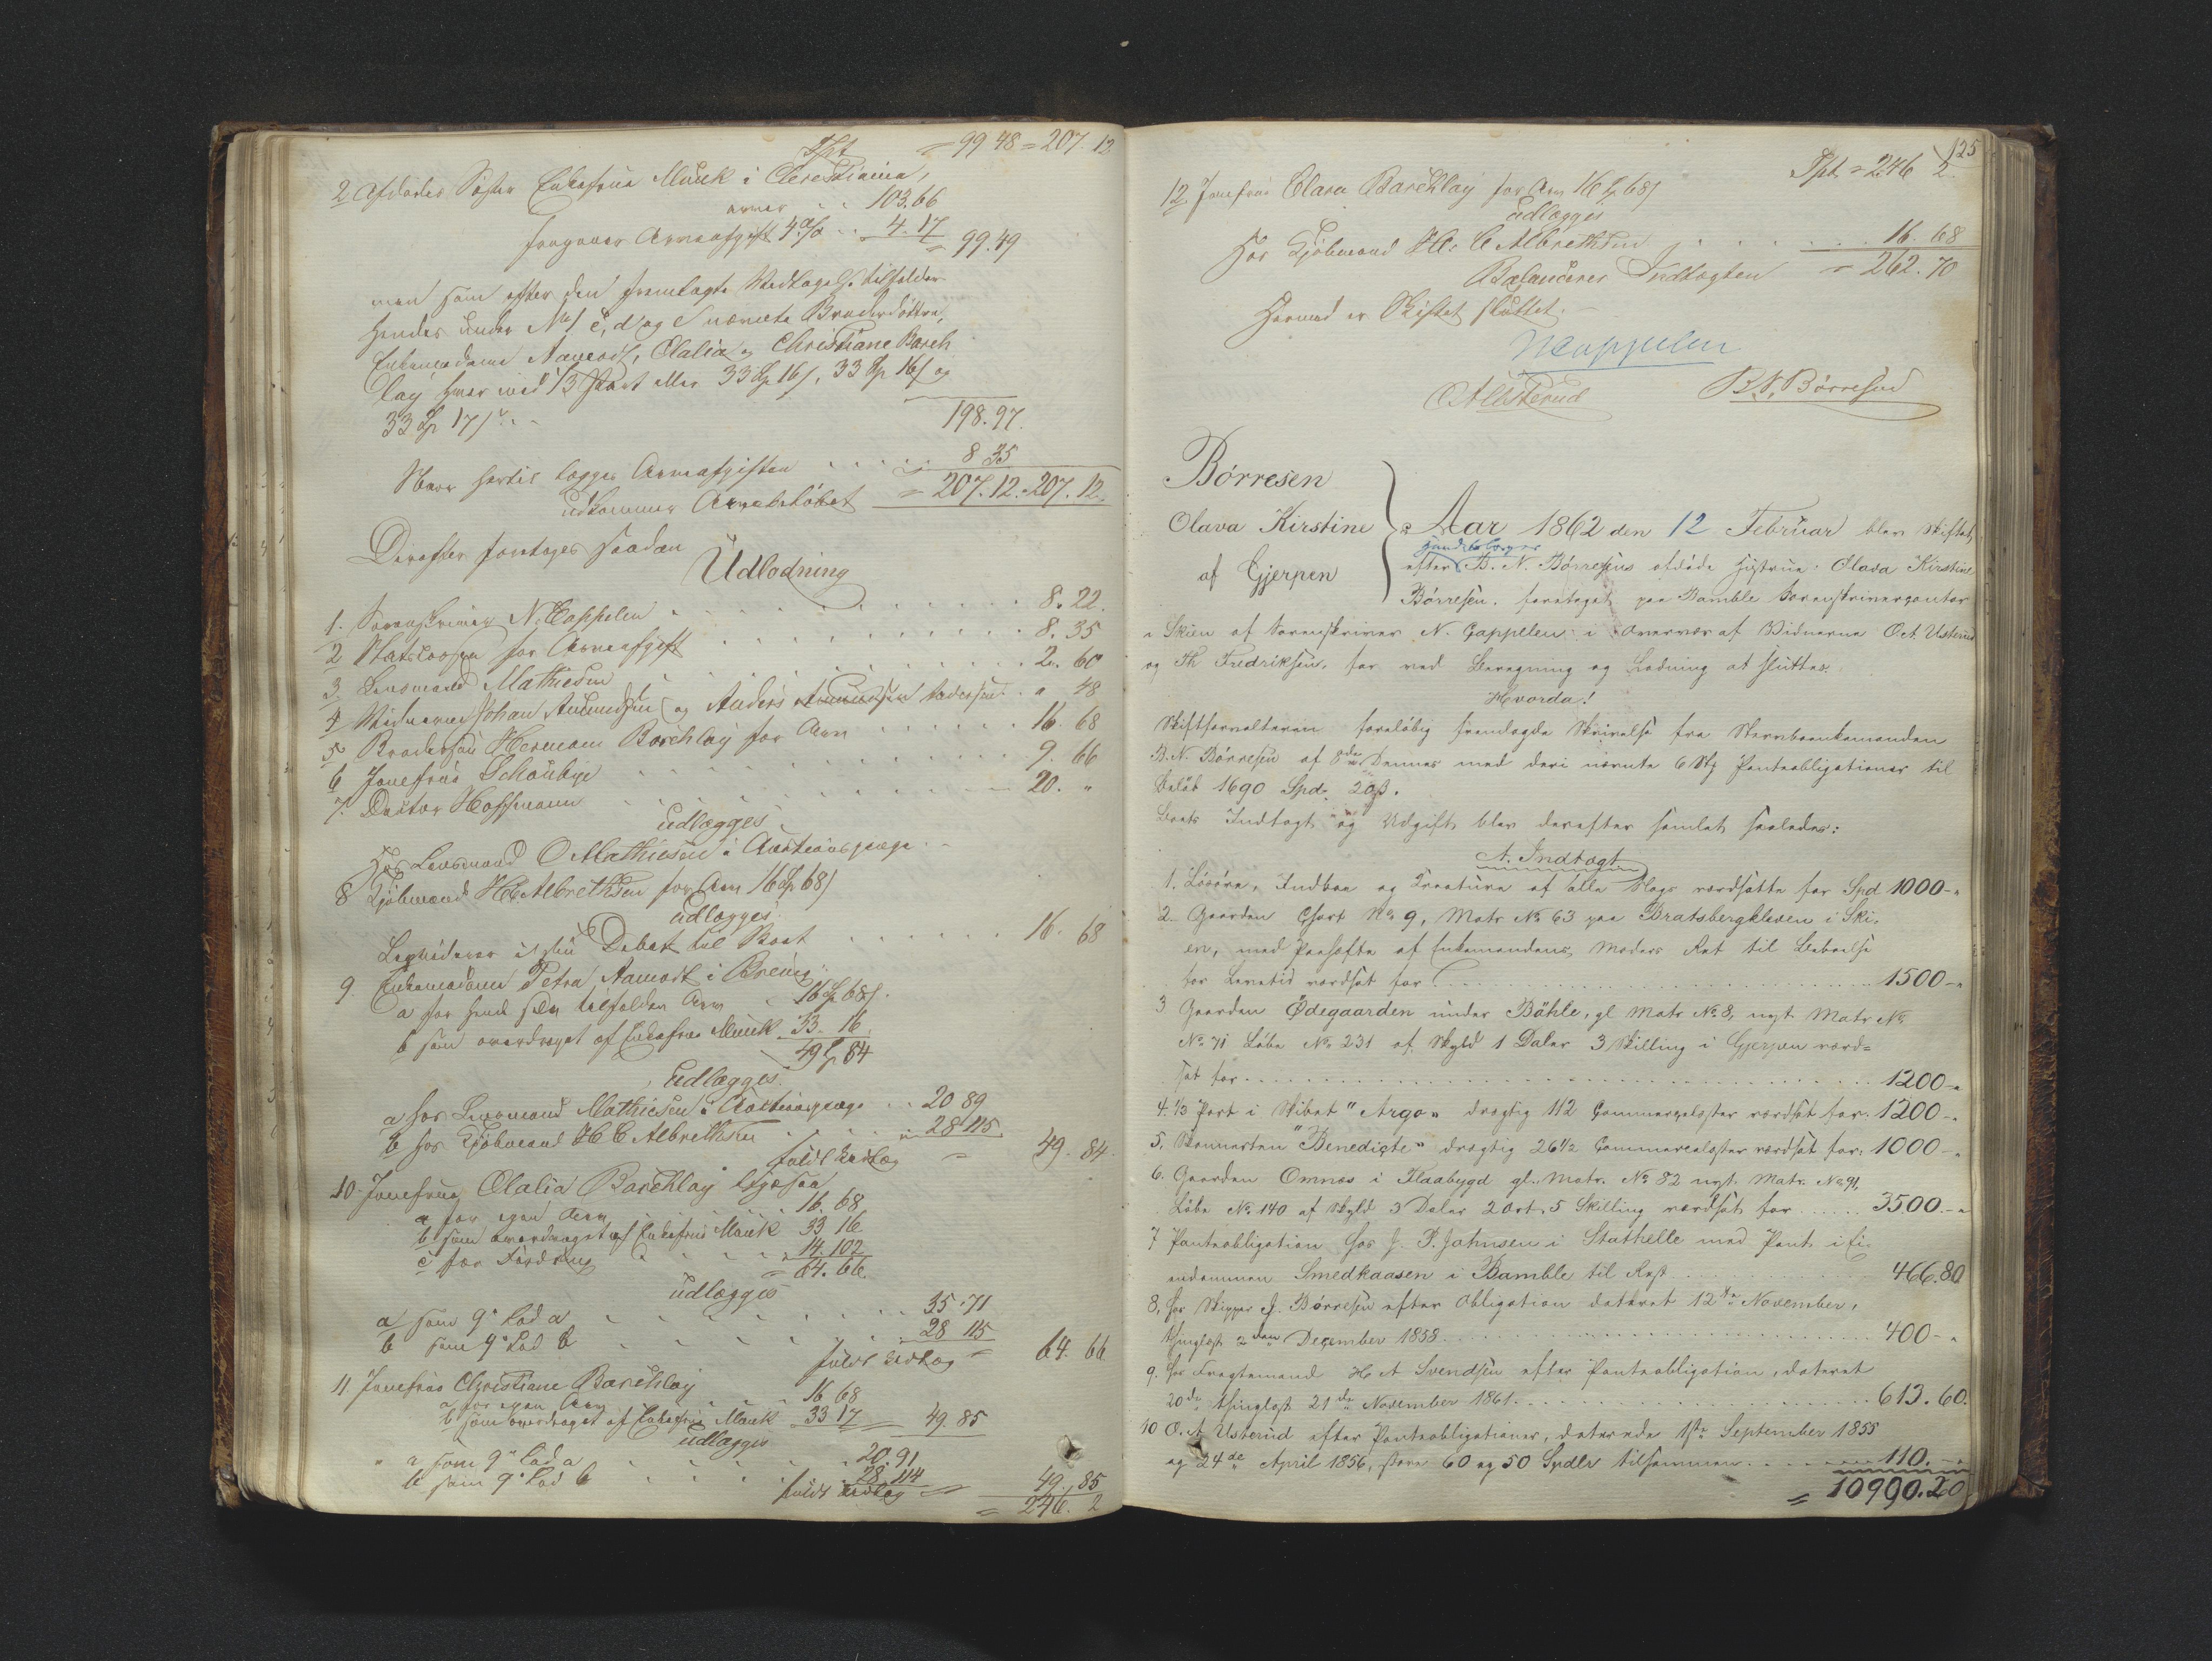 Spt = 99 48 = 207. 12
2 Afdødes Søster Enkefrue Munck i Christiania,
arver 103.66
fragaaer Arveafgift 4 % 4. 17
= 99.49
men som efter den fremlagte Vedtagelse tilfalder
hendes under No 1 c, d og e nævnte Broderdøttre,
Enkemadame Aamodt, Olalia og Christiane Barch
lay hver med 1/3 Part eller 33 Sp 16 s, 33 Sp 16 s og
33 Sp 17 s
198.97.
Naar hertil lægges Arveafgiften 8 35
udkommer Arvebeløbet = 207.12 = 207. 12.
Derefter foretages saadan
Udlodning
1. Sorenskriver N. Cappelen 8. 22.
2 Statscassen for Arveafgift 8. 35
3 Lensmand Mathiesen 2. 60
4 Vidnerne Johan Amundsen og Anders Amundsen Andersen " 48
5 Brodersøn Herman Barchlay for Arv 16. 68
6 Jomfrue Schoubye 9. 66
7. Doctor Hoffmann 20. "
udlægges
Hos Lensmand O Mathiesen i Auctionspenge
8 Kjøbmand H C Albrethsen for Arv 16 Sp 68 s
udlægges
Liqvideres i sin Debet til Boet 16. 68
9. Enkemadame Petra Aamodt i Brevig
a for hend selv tilfalden Arv 16 Sp 68 s.
b som overdraget af Enkefrue Munck 33. 16.
49 Sp 84
Udlægges.
a hos Lensmand Mathiesen i Auctionspenge 20 89
b hos Kjøbmand H C Albrethsen 28 115
fuldt Udlæg = 49. 84.
10. Jomfrue Olalia Barchlay ligesaa
a for egen Arv 16. 68
b som overdraget af Enkefrue Munck 33 16
c for Fordring 14. 102
= 64. 66.
udlægges
a som 9de Lod a 35.71
b som 9de Lod b 28 115
fuldt Udlæg = 64. 66
11. Jomfrue Christiane Barchlay
a for egen Arv 16 68
b som overdraget af Enkefrue Munck 33 17 49. 85
udlægges
a som 9de Lod a 20. 91
b som 9de Lod b 28. 114
fuldt Udlæg = 49. 85
= 246. 2
125
Spt = 246 2.
12. Jomfrue Clara Barchlay for Arv 16 Sp 68 s
udlægges
Hos Kjøbmand H. C Albrethsen 16. 68
Balancerer Indtægten = 262. 70
Hermed er Skiftet sluttet.
N Cappelen
O A Usterud B. N. Børresen
Børresen
Olava Kirstine
af Gjerpen
Aar 1862 den 12 Februar blev Skiftet
efter B. N. Børresens afdøde Hustrue Olava Kirstine
Børresen foretaget paa Bamble Sorenskrivercontor
i Skien af Sorenskriver N. Cappelen i Overvær af Vidnerne O. A. Usterud
og Th Fredriksen, for ved Beregning og Lodning at sluttes.
Hvorda!
Skiftforvalteren foreløbig fremlagde Skrivelse fra Stervboenkemanden
B. N. Børresen af 8de Dennes med deri nævnte 6 Stk Panteobligationer til
Beløb 1690 Spd. 20 s.
Boets Indtægt og Udgift blev derefter samlet saaledes:
A. Indtægt
1. Løsøre, Indboe og Creature af alle Slags værdsatte for Spd 1000 - "
2. Gaarden Chart No 9, Matr No 63 paa Bratsbergkleven i Ski-
en, med Paahefte af Enkemandens Moders Ret til Beboelse
for Levetid værdsat for 1500 - "
3 Gaarden Ødegaarden under Bøhle, gl Matr No 8, nyt Matr No
No 71 Løbe No 231 af Skyld 1 Daler 3 Skilling i Gjerpen værd=
sat for 1200 - "
4. 1/3 Part i Skibet "Argo" drægtig 112 Commercelæster værdsat for 1200 - "
5. Skonnerten "Benedicte" drægtig 26 1/2 Commercelæster værdsat for 1000 - "
6. Gaarden Omnæs i Flaabygd gl. Matr. No 82 nyt. Matr. No 91,
Løbe No 140 af Skyld 3 Daler 2 Ort 5 Skilling værdsat for 3500. - "
7 Panteobligation hos J. P. Jahnsen i Stathelle med Pant i Ei-
endommen Smedkaasen i Bamble til Rest 466.80
8, hos Skipper J. Børresen efter Obligation dateret 12te November,
thinglæst 2den December 1858 400 - "
9. hos Fragtemand H. A Svendsen efter Panteobligation, dateret
20de thinglæst 21de November 1861 613. 60.
10 O. A Usterud efter Panteobligationer, daterede 1ste September 1855
og 24de April 1856, store 60 og 50 Spdlr tilsammen 110. - "
= 10990.20